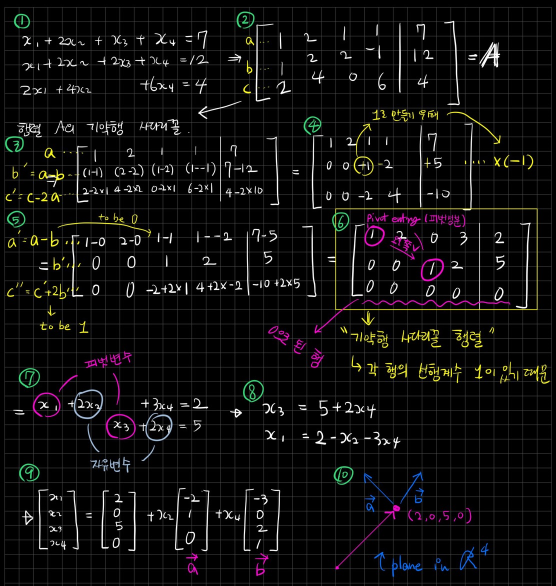 ①
x₁ + 2x₂ + x₃ + x₄ = 7
x₁ + 2x₂ + 2x₃ - x₄ = 12
2x₁ + 4x₂ + 6x₄ = 4
⇒
②
a ... 1 2 1 1 | 7
b ... 1 2 2 -1 | 12
c ... 2 4 0 6 | 4
= A
행렬 A의 기약행 사다리꼴.
③
a ... 1 2 1 1 | 7
b' = a-b ... (1-1) (2-2) (1-2) (1--1) | 7-12
c' = c-2a ... 2-2×1 4-2×2 0-2×1 6-2×1 | 4-2×10
=
④
1로 만들기 위해
1 2 1 1 | 7
0 0 +1 -2 | +5
0 0 -2 4 | -10
... ×(-1)
⑤
to be 0
a' = a-b ... 1-0 2-0 1-1 1--2 | 7-5
= b' ... 0 0 1 2 | 5
c'' = c'+2b' ... 0 0 -2+2×1 4+2×-2 | -10+2×5
to be 1
=
⑥
Pivot entry (피벗성분)
오른쪽
1 2 0 3 2
0 0 1 2 5
0 0 0 0 0
0으로 된 행
"기약행 사다리꼴 행렬"
↳ 각 행의 선행계수 1이 있기 때문
⑦
피벗변수
= x₁ + 2x₂ + 3x₄ = 2
x₃ + 2x₄ = 5
자유변수
→
⑧
x₃ = 5 + 2x₄
x₁ = 2 - x₂ - 3x₄
⑨
x₁ 2 -2 -3
x₂ = 0 + x₂ 1 + x₄ 0
x₃ 5 0 2
x₄ 0 1
a b
⑩
a b
(2,0,5,0)
↑ plane in R⁴